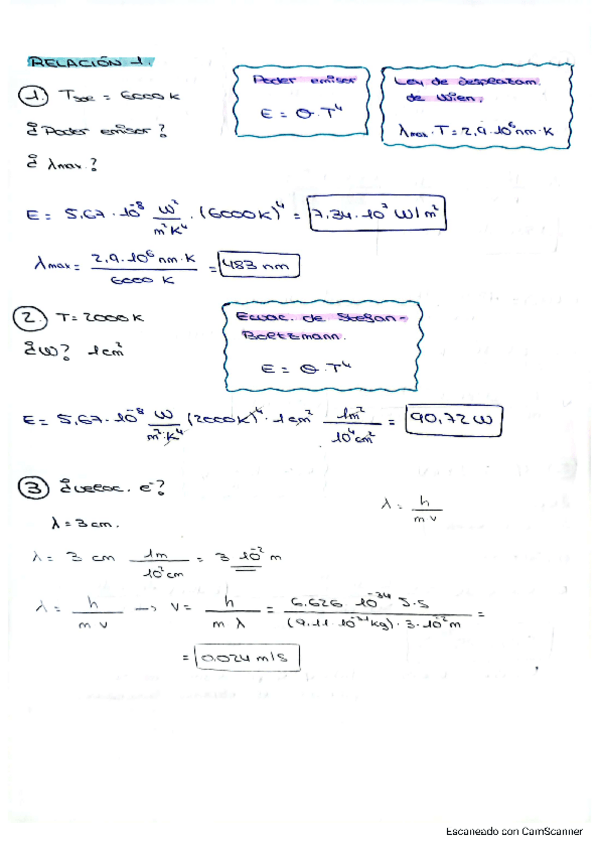 RELACIÓN 1.
1. Tsol = 6000 K
¿Poder emisor?
¿λmax?
Poder emisor
E = σ·T⁴
Ley de desplazam.
de Wien.
λmax·T = 2,9·10⁶ nm·K
E = 5,67·10⁻⁸ W²/m²K⁴ · (6000K)⁴ = 7,34·10⁷ W/m²
λmax = 2,9·10⁶ nm·K / 6000 K = 483 nm
2. T = 2000 K
¿W? 1cm²
Ecuac. de Stefan-
Boltzmann.
E = σ·T⁴
E = 5,67·10⁻⁸ W/m²·K⁴ (2000K)⁴ · 1cm² 1m²/10⁴cm² = 90,72 W
3 ¿veloc. e⁻?
λ = 3 cm.
λ = h / m v
λ = 3 cm 1m/10²cm = 3 10⁻² m
λ = h / m v → v = h / m λ = 6,626 10⁻³⁴ J·s / (9,11·10⁻³¹kg)·3·10⁻²m =
= 0,024 m/s
Escaneado con CamScanner